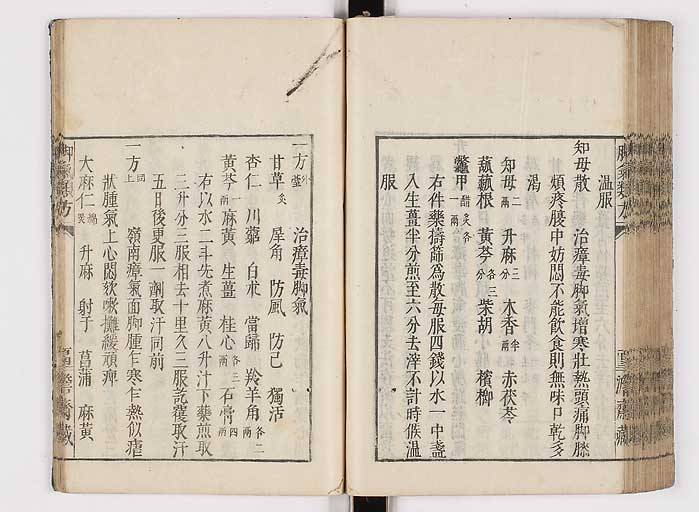 温服
知母散 治瘴毒脚氣增寒壯熱頭痛脚膝
煩疼腰中妨悶不能飲食則無味口乾多
渴
知母 二兩 升麻 三分 木香 半兩 赤茯苓
蓏根 黄芩 各三分 柴胡 檳榔
鱉甲 醋炙各一兩
右件藥擣篩爲散每服四錢以水一中盞
入生薑半分煎至六分去滓不計時候温
服
脚氣類方
聖濟齋藏
一方 治瘴毒脚氣
甘草 炙 犀角 防風 防己 獨活
杏仁 川藭 白朮 當歸 羚羊角 各二兩
黄芩 一兩 麻黄 生薑 桂心 各三兩 石膏 四兩
右以水二斗先煮麻黄八升汁下藥煎取
三升分三服相去十里久三服訖覆取汗
五日後更服一劑取汗同前
一方 同上 嶺南瘴氣面脚腫乍寒乍熱似瘧
狀腫氣上心悶欬嗽攤緩頑痺
大麻仁 升麻 射干 菖蒲 麻黄
脚氣類方